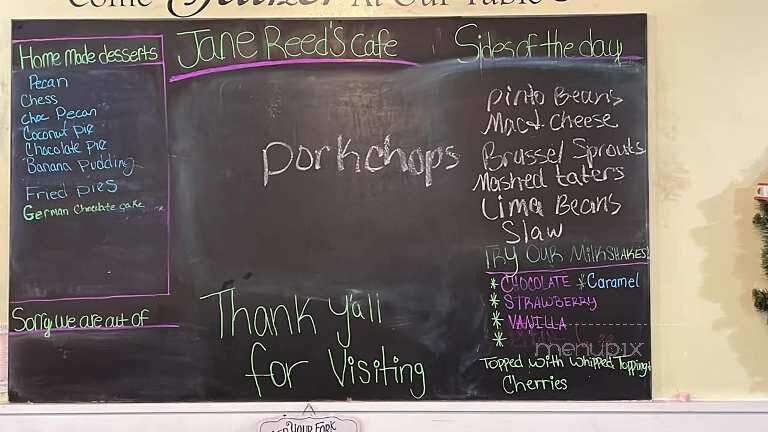 Come Gather At Our Table
Home Made desserts
Pecan
Chess
choc Pecan
Coconut pie
Chocolate pie
Banana Pudding
Fried pies
German Chocolate cake
Sorry we are out of
Jane Reed's Cafe
Porkchops
Thank Y'all
for Visiting
Sides of the day
Pinto Beans
Mac & cheese
Brussel Sprouts
Mashed taters
Lima Beans
Slaw
TRY OUR MILKSHAKES!
* CHOCOLATE * Caramel
* STRAWBERRY
* VANILLA
*
Topped with whipped Topping +
Cherries
menupix
YOUR FORK